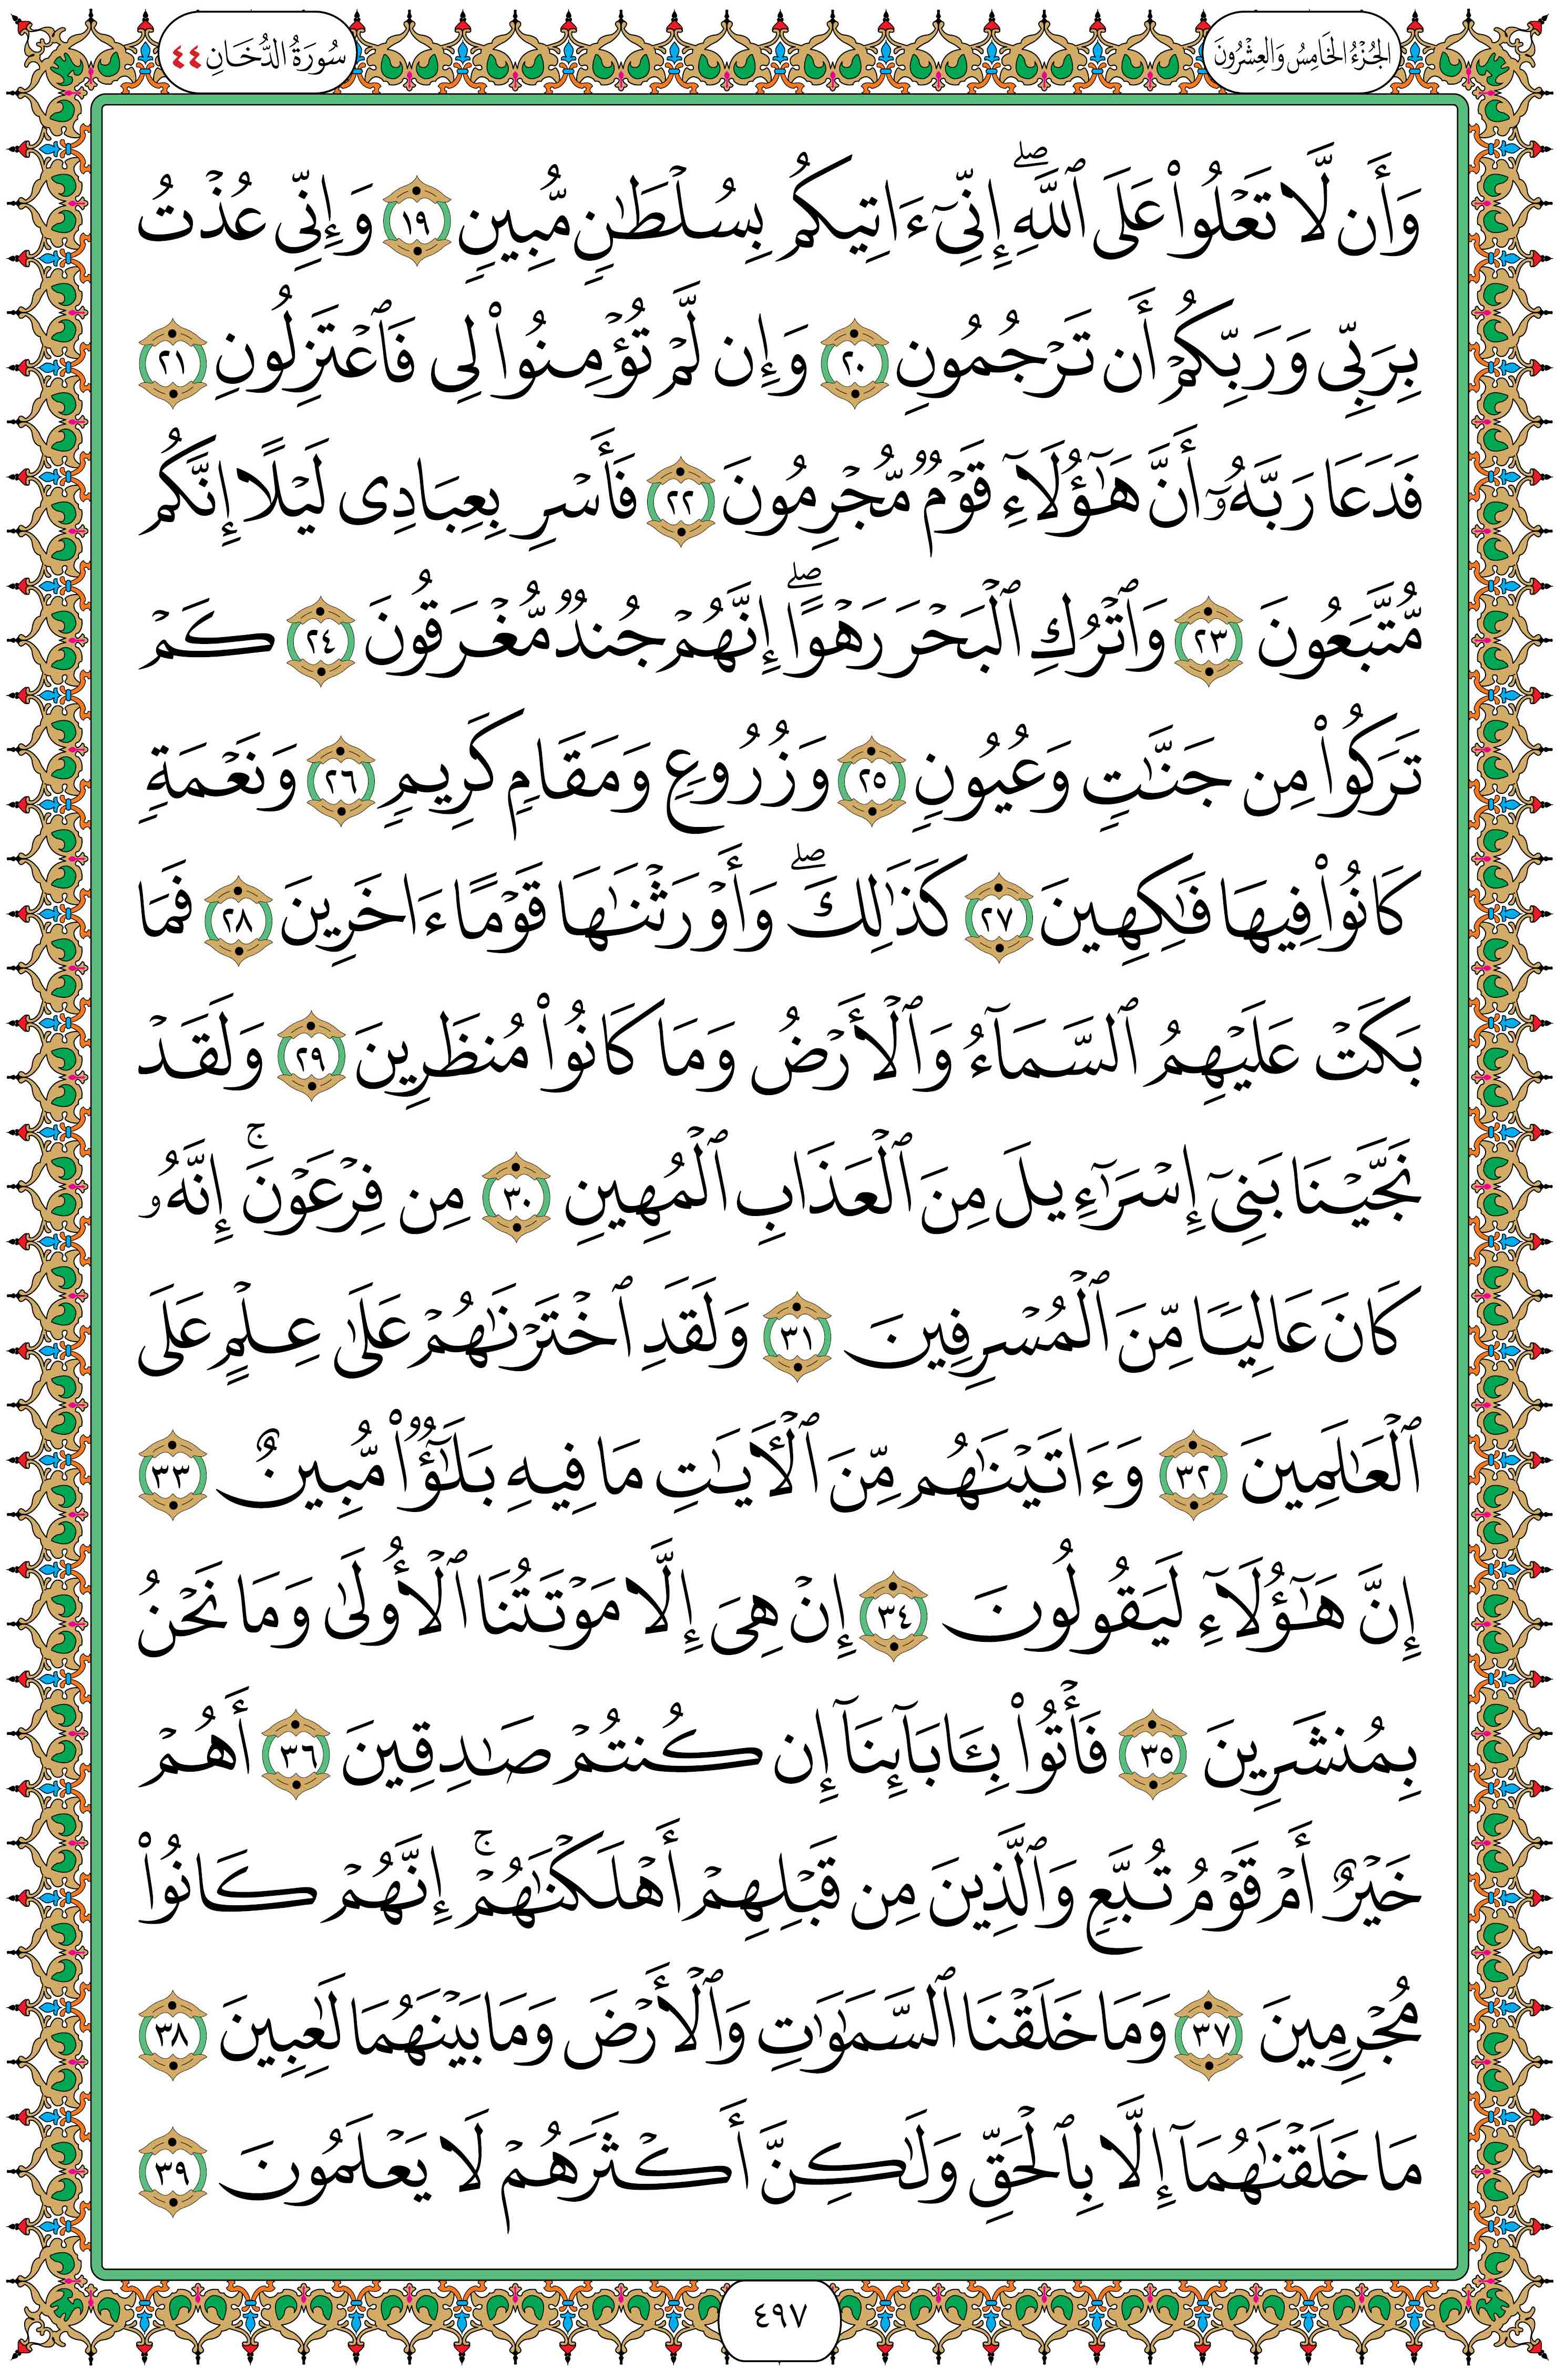 الجُزْءُ الخَامِسُ وَالعِشْرُونَ
سُورَةُ الدُّخَانِ ٤٤
وَأَن لَّا تَعۡلُواْ عَلَى ٱللَّهِۖ إِنِّيٓ ءَاتِيكُم بِسُلۡطَٰنٖ مُّبِينٖ ١٩ وَإِنِّي عُذۡتُ
بِرَبِّي وَرَبِّكُمۡ أَن تَرۡجُمُونِ ٢٠ وَإِن لَّمۡ تُؤۡمِنُواْ لِي فَٱعۡتَزِلُونِ ٢١
فَدَعَا رَبَّهُۥٓ أَنَّ هَٰٓؤُلَآءِ قَوۡمٞ مُّجۡرِمُونَ ٢٢ فَأَسۡرِ بِعِبَادِي لَيۡلًا إِنَّكُم
مُّتَّبَعُونَ ٢٣ وَٱتۡرُكِ ٱلۡبَحۡرَ رَهۡوًاۖ إِنَّهُمۡ جُندٞ مُّغۡرَقُونَ ٢٤ كَمۡ
تَرَكُواْ مِن جَنَّٰتٖ وَعُيُونٖ ٢٥ وَزُرُوعٖ وَمَقَامٖ كَرِيمٖ ٢٦ وَنَعۡمَةٖ
كَانُواْ فِيهَا فَٰكِهِينَ ٢٧ كَذَٰلِكَۖ وَأَوۡرَثۡنَٰهَا قَوۡمًا ءَاخَرِينَ ٢٨ فَمَا
بَكَتۡ عَلَيۡهِمُ ٱلسَّمَآءُ وَٱلۡأَرۡضُ وَمَا كَانُواْ مُنظَرِينَ ٢٩ وَلَقَدۡ
نَجَّيۡنَا بَنِيٓ إِسۡرَٰٓءِيلَ مِنَ ٱلۡعَذَابِ ٱلۡمُهِينِ ٣٠ مِن فِرۡعَوۡنَۚ إِنَّهُۥ
كَانَ عَالِيٗا مِّنَ ٱلۡمُسۡرِفِينَ ٣١ وَلَقَدِ ٱخۡتَرۡنَٰهُمۡ عَلَىٰ عِلۡمٍ عَلَى
ٱلۡعَٰلَمِينَ ٣٢ وَءَاتَيۡنَٰهُم مِّنَ ٱلۡأٓيَٰتِ مَا فِيهِ بَلَٰٓؤٞاْ مُّبِينٌ ٣٣
إِنَّ هَٰٓؤُلَآءِ لَيَقُولُونَ ٣٤ إِنۡ هِيَ إِلَّا مَوۡتَتُنَا ٱلۡأُولَىٰ وَمَا نَحۡنُ
بِمُنشَرِينَ ٣٥ فَأۡتُواْ بِـَٔابَآئِنَآ إِن كُنتُمۡ صَٰدِقِينَ ٣٦ أَهُمۡ
خَيۡرٌ أَمۡ قَوۡمُ تُبَّعٖ وَٱلَّذِينَ مِن قَبۡلِهِمۡ أَهۡلَكۡنَٰهُمۡۚ إِنَّهُمۡ كَانُواْ
مُجۡرِمِينَ ٣٧ وَمَا خَلَقۡنَا ٱلسَّمَٰوَٰتِ وَٱلۡأَرۡضَ وَمَا بَيۡنَهُمَا لَٰعِبِينَ ٣٨
مَا خَلَقۡنَٰهُمَآ إِلَّا بِٱلۡحَقِّ وَلَٰكِنَّ أَكۡثَرَهُمۡ لَا يَعۡلَمُونَ ٣٩
٤٩٧